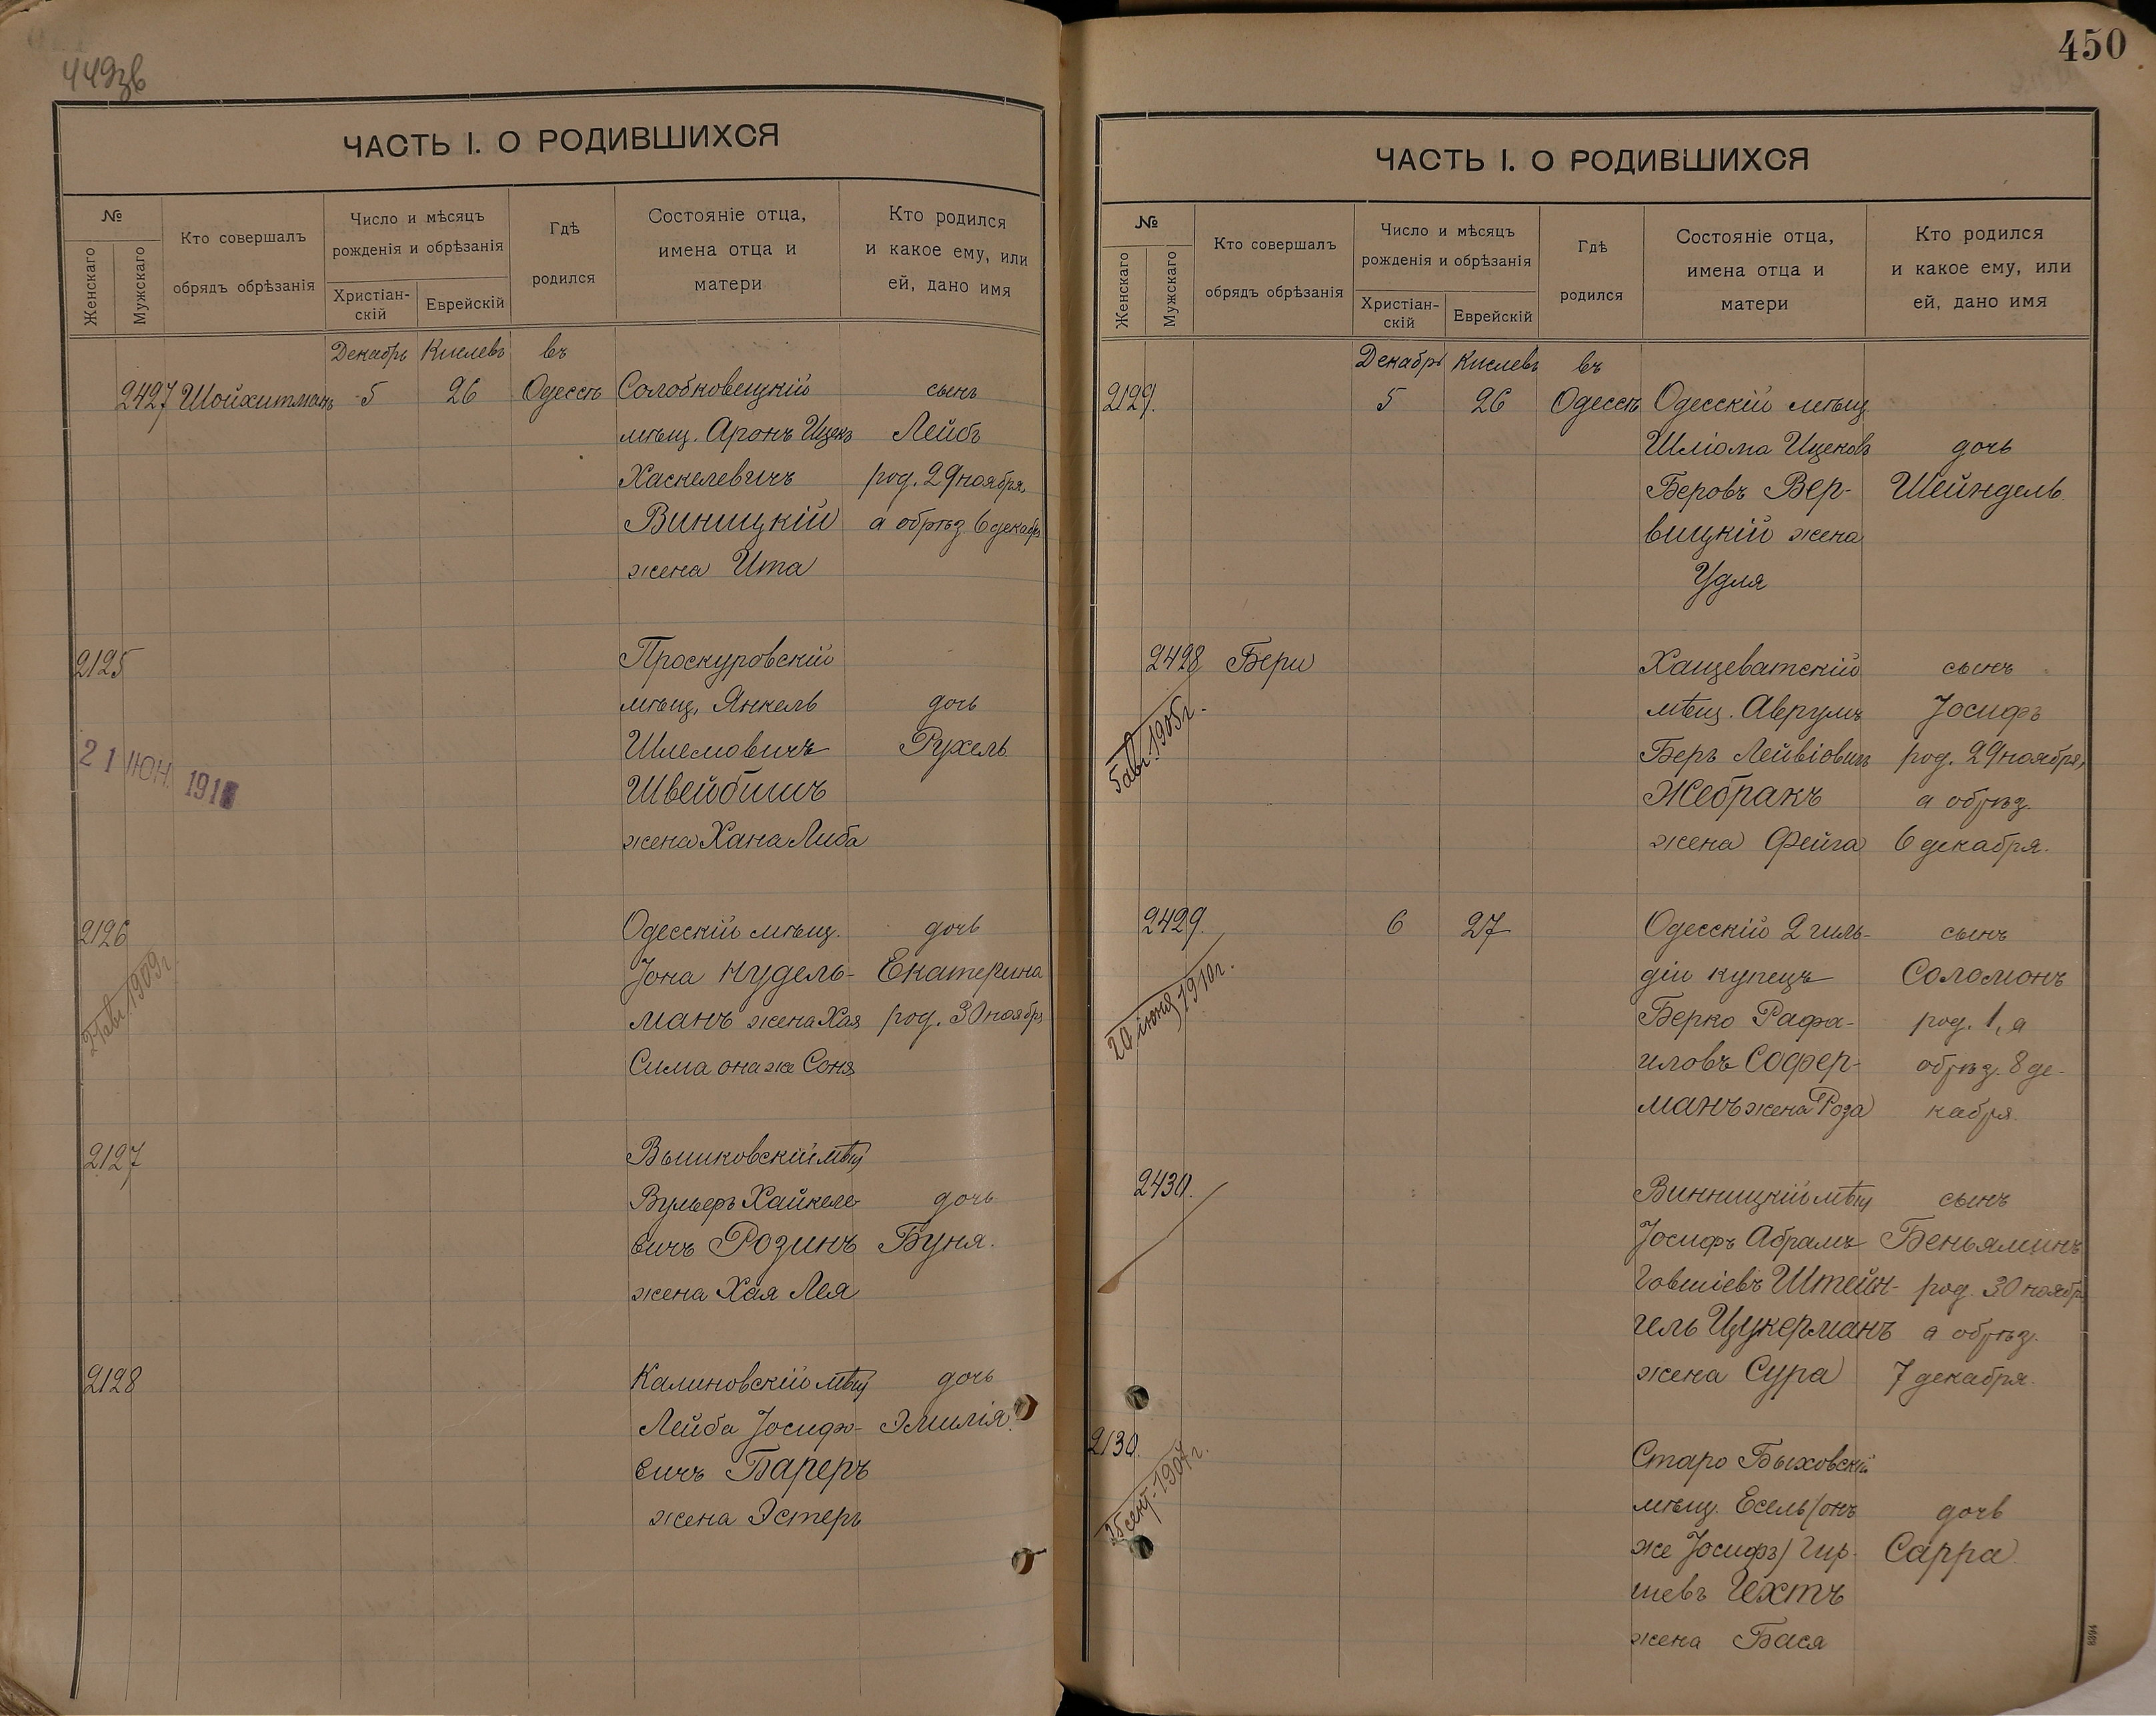 449зв
ЧАСТЬ I. О РОДИВШИХСЯ
№
Женскаго
Мужскаго
Кто совершалъ
обрядъ обрѣзанія
Число и мѣсяцъ
рожденія и обрѣзанія
Христіан-
скій
Еврейскій
Гдѣ
родился
Состояніе отца,
имена отца и
матери
Кто родился
и какое ему, или
ей, дано имя
Декабрь Кислевъ въ
2427 Шойхитманъ 5 26 Одессѣ Солобковецкій сынъ
мѣщ. Аронъ Ицекъ Лейбъ
Хаскелевичъ род. 29 ноября,
Виницкій а обрѣз. 6 декабря
жена Ита
2125 Проскуровскій
мѣщ. Янкель дочь
Шлемовичъ Рухель
Швейбишъ
жена Хана Либа
21 ИЮН. 191
2126 Одесскій мѣщ. дочь
Іона Нудель- Екатерина
манъ жена Хая род. 30 ноябр
Сима она же Соня
авг. 1909г.
2127 Вышковскій мѣщ
Вульфъ Хайкеле- дочь
вичъ Розинъ Буня.
жена Хая Лея
2128 Калиновскій мѣщ дочь
Лейба Іосифо- Эмилія.
вичъ Бареръ
жена Эстеръ
450
ЧАСТЬ I. О РОДИВШИХСЯ
№
Женскаго
Мужскаго
Кто совершалъ
обрядъ обрѣзанія
Число и мѣсяцъ
рожденія и обрѣзанія
Христіан-
скій
Еврейскій
Гдѣ
родился
Состояніе отца,
имена отца и
матери
Кто родился
и какое ему, или
ей, дано имя
Декабрь Кислевъ въ
2129. 5 26 Одессѣ Одесскій мѣщ
Шліома Ицековъ дочь
Беровъ Вер- Шейндель.
вицкій жена
Удля
2428 Бери Хащеватскій сынъ
мѣщ. Аврумъ Іосифъ
Беръ Лейвіовичъ род. 29 ноября,
Жебракъ а обрѣз.
жена Фейга 6 декабря.
5 авг. 1905г.
2429. 6 27 Одесскій 2 гиль- сынъ
діи купецъ Соломонъ
Берко Рафа- род. 1, а
иловъ Софер- обрѣз. 8 де-
манъ жена Роза кабря.
20 июня 1910г.
2430. Винницкій мѣщ сынъ
Іосифъ Абрамъ Беньяминъ
Говшіевъ Штейн- род. 30 ноябр
гель Цукерманъ а обрѣз.
жена Сура 7 декабря.
2130. Старо Быховскій
мѣщ. Есель /онъ дочь
же Іосифъ/ Гир- Сарра.
шевъ Гехтъ
жена Бася
25 сент. 1907г.
8394